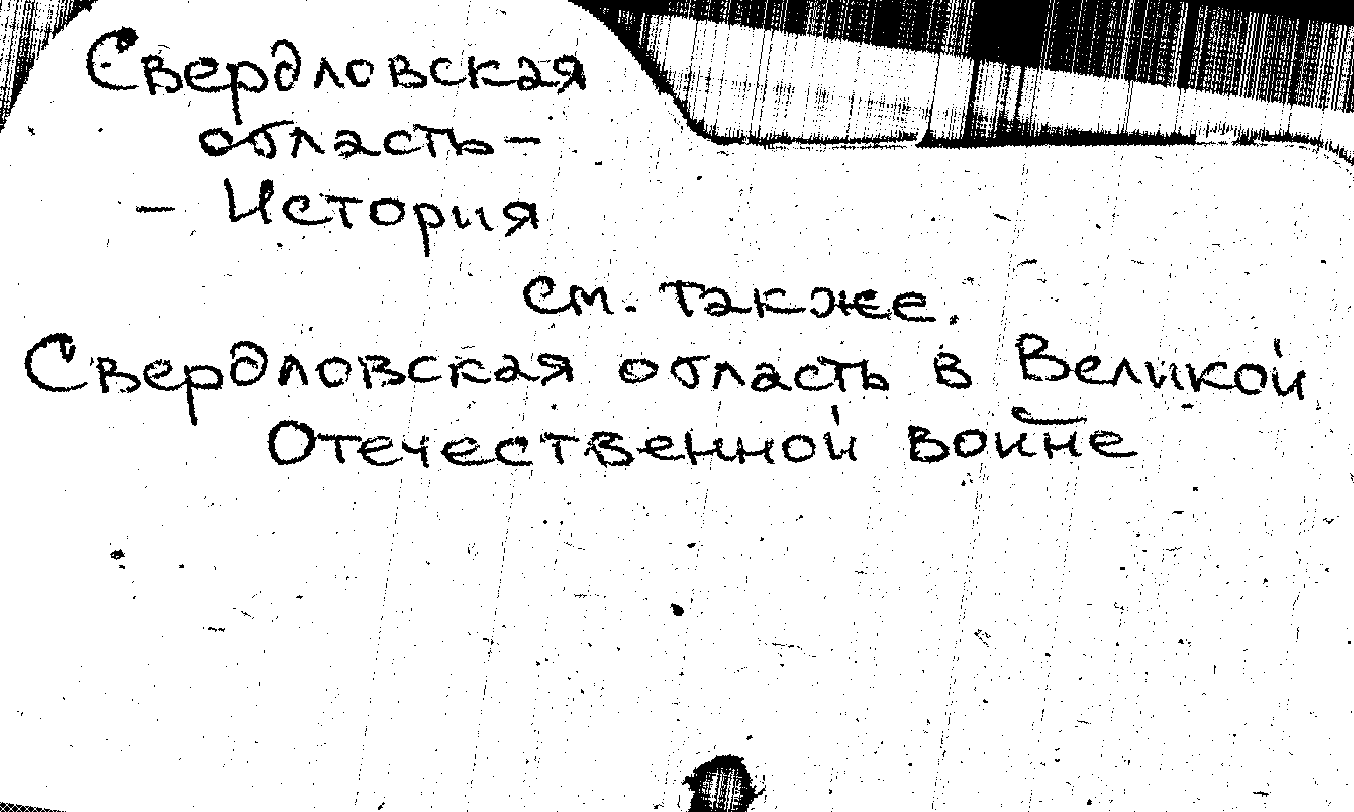 Свердловская
область –
– История
см. также.
Свердловская область в Великой
Отечественной войне